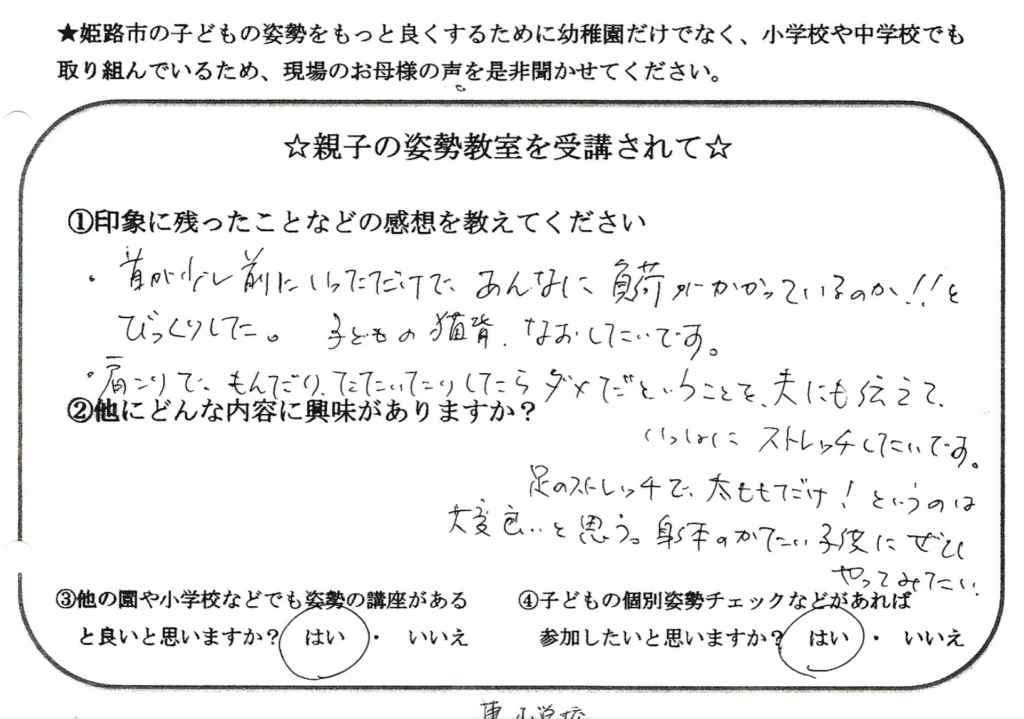 ★姫路市の子どもの姿勢をもっと良くするために幼稚園だけでなく、小学校や中学校でも
取り組んでいるため、現場のお母様の声を是非聞かせてください。
☆親子の姿勢教室を受講されて☆
①印象に残ったことなどの感想を教えてください
・首が少し前にいっただけで、あんなに負荷がかかっているのか!!と
びっくりした。子どもの猫背、なおしたいです。
・肩こりで、もんだり、たたいたりしたらダメだということを、夫にも伝えて、
②他にどんな内容に興味がありますか？
いっしょに ストレッチしたいです。
足のストレッチで、太ももだけ！というのは
大変良いと思う。身体のかたい子供にぜひ
やってみたい。
③他の園や小学校などでも姿勢の講座がある
と良いと思いますか？ はい ・ いいえ
④子どもの個別姿勢チェックなどがあれば
参加したいと思いますか？ はい ・ いいえ
小学校